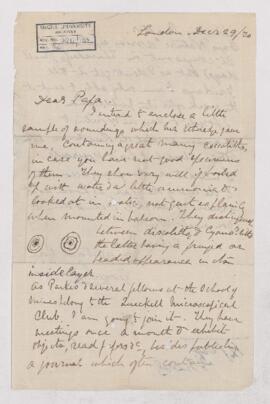 London, Dec 29/70
Dear Papa,
I intend to enclose a little
sample of soundings which Mr Etheridge gave
me, containing a great many coccoliths,
in case you have not good specimens
of them. They show very well if boiled
up with water & a little ammonia &
looked at in water, not quite so plainly
when mounted in balsam. They distinguish
between discoliths & Cyatholiths
the latter having a fringed or
beaded appearance in their
inside layer
As Parkes & several fellows at the School of
Mines belong to the Queckett Microscopical
Club, I am going to join it. They have
meetings once a month to exhibit
objects, read papers &c, besides publishing
a journal which often contains